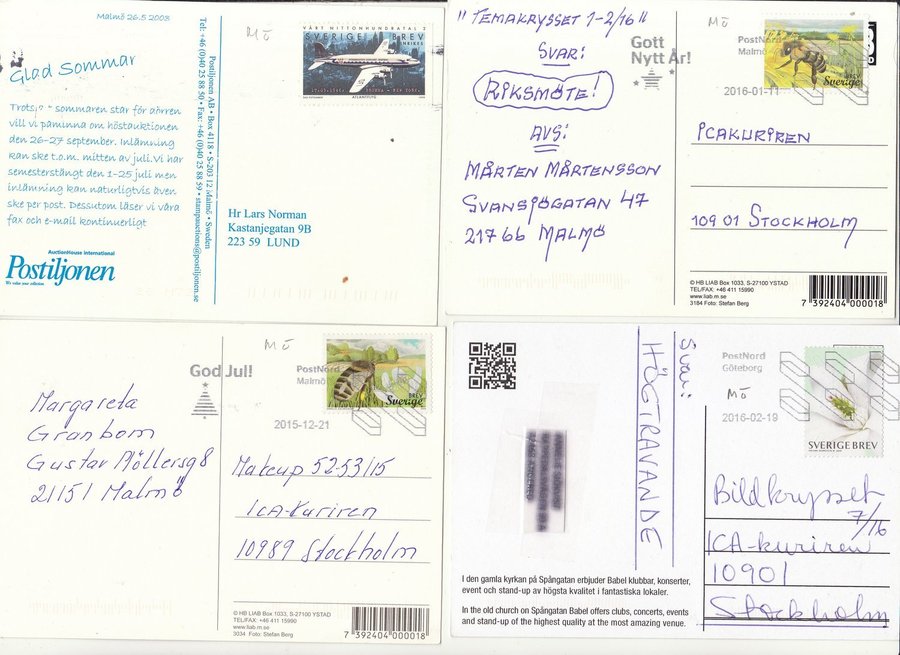 Malmö 26.5 2003
Glad Sommar
sommaren står för dörren
vill vi påminna om höstauktionen
den 26-27 september. Inlämning
kan ske t.o.m. mitten av juli. Vi har
semesterstängt den 1-25 juli men
inlämning kan naturligtvis även
ske per post. Dessutom läser vi våra
fax och e-mail kontinuerligt
AuctionHouse International
Postiljonen
We value your collection
Postiljonen AB • Box 4118 • S-203 12 Malmö • Sweden
Tel: +46 (0)40 25 88 50 • Fax: +46 (0)40 25 88 59 • stampauctions@postiljonen.se
MÖ
VÅRT NITTONHUNDRATAL 2
SVERIGE BREV
INRIKES
Hr Lars Norman
Kastanjegatan 9B
223 59 LUND
"TEMAKRYSSET 1-2/16"
SVAR:
RIKSMÖTE!
AVS:
MÅRTEN MÅRTENSSON
SVANSJÖGATAN 47
21766 MALMÖ
Gott
Nytt År!
MÖ
PostNord
Malmö
2016-01-11
BREV
Sverige
ICAKURIREN
109 01 STOCKHOLM
© HB LIAB Box 1033, S-27100 YSTAD
TEL/FAX: +46 411 15990
www.liab-m.se
3184 Foto: Stefan Berg
7 392404 000018
Margareta
Granbom
Gustav Möllersg 8
21151 Malmö
God Jul!
MÖ
PostNord
Malmö
2015-12-21
BREV
Sverige
Makeup 52-53/15
ICA-Kuriren
10989 Stockholm
© HB LIAB Box 1033, S-27100 YSTAD
TEL/FAX: +46 411 15990
www.liab-m.se
3034 Foto: Stefan Berg
7 392404 000018
Svar:
HÖGTRAVANDE
PostNord
Göteborg
MÖ
2016-02-19
SVERIGE BREV
Bildkrysset
7/16
ICA-kuriren
10901
Stockholm
I den gamla kyrkan på Spångatan erbjuder Babel klubbar, konserter,
event och stand-up av högsta kvalitet i fantastiska lokaler.
In the old church on Spångatan Babel offers clubs, concerts, events
and stand-up of the highest quality at the most amazing venue.